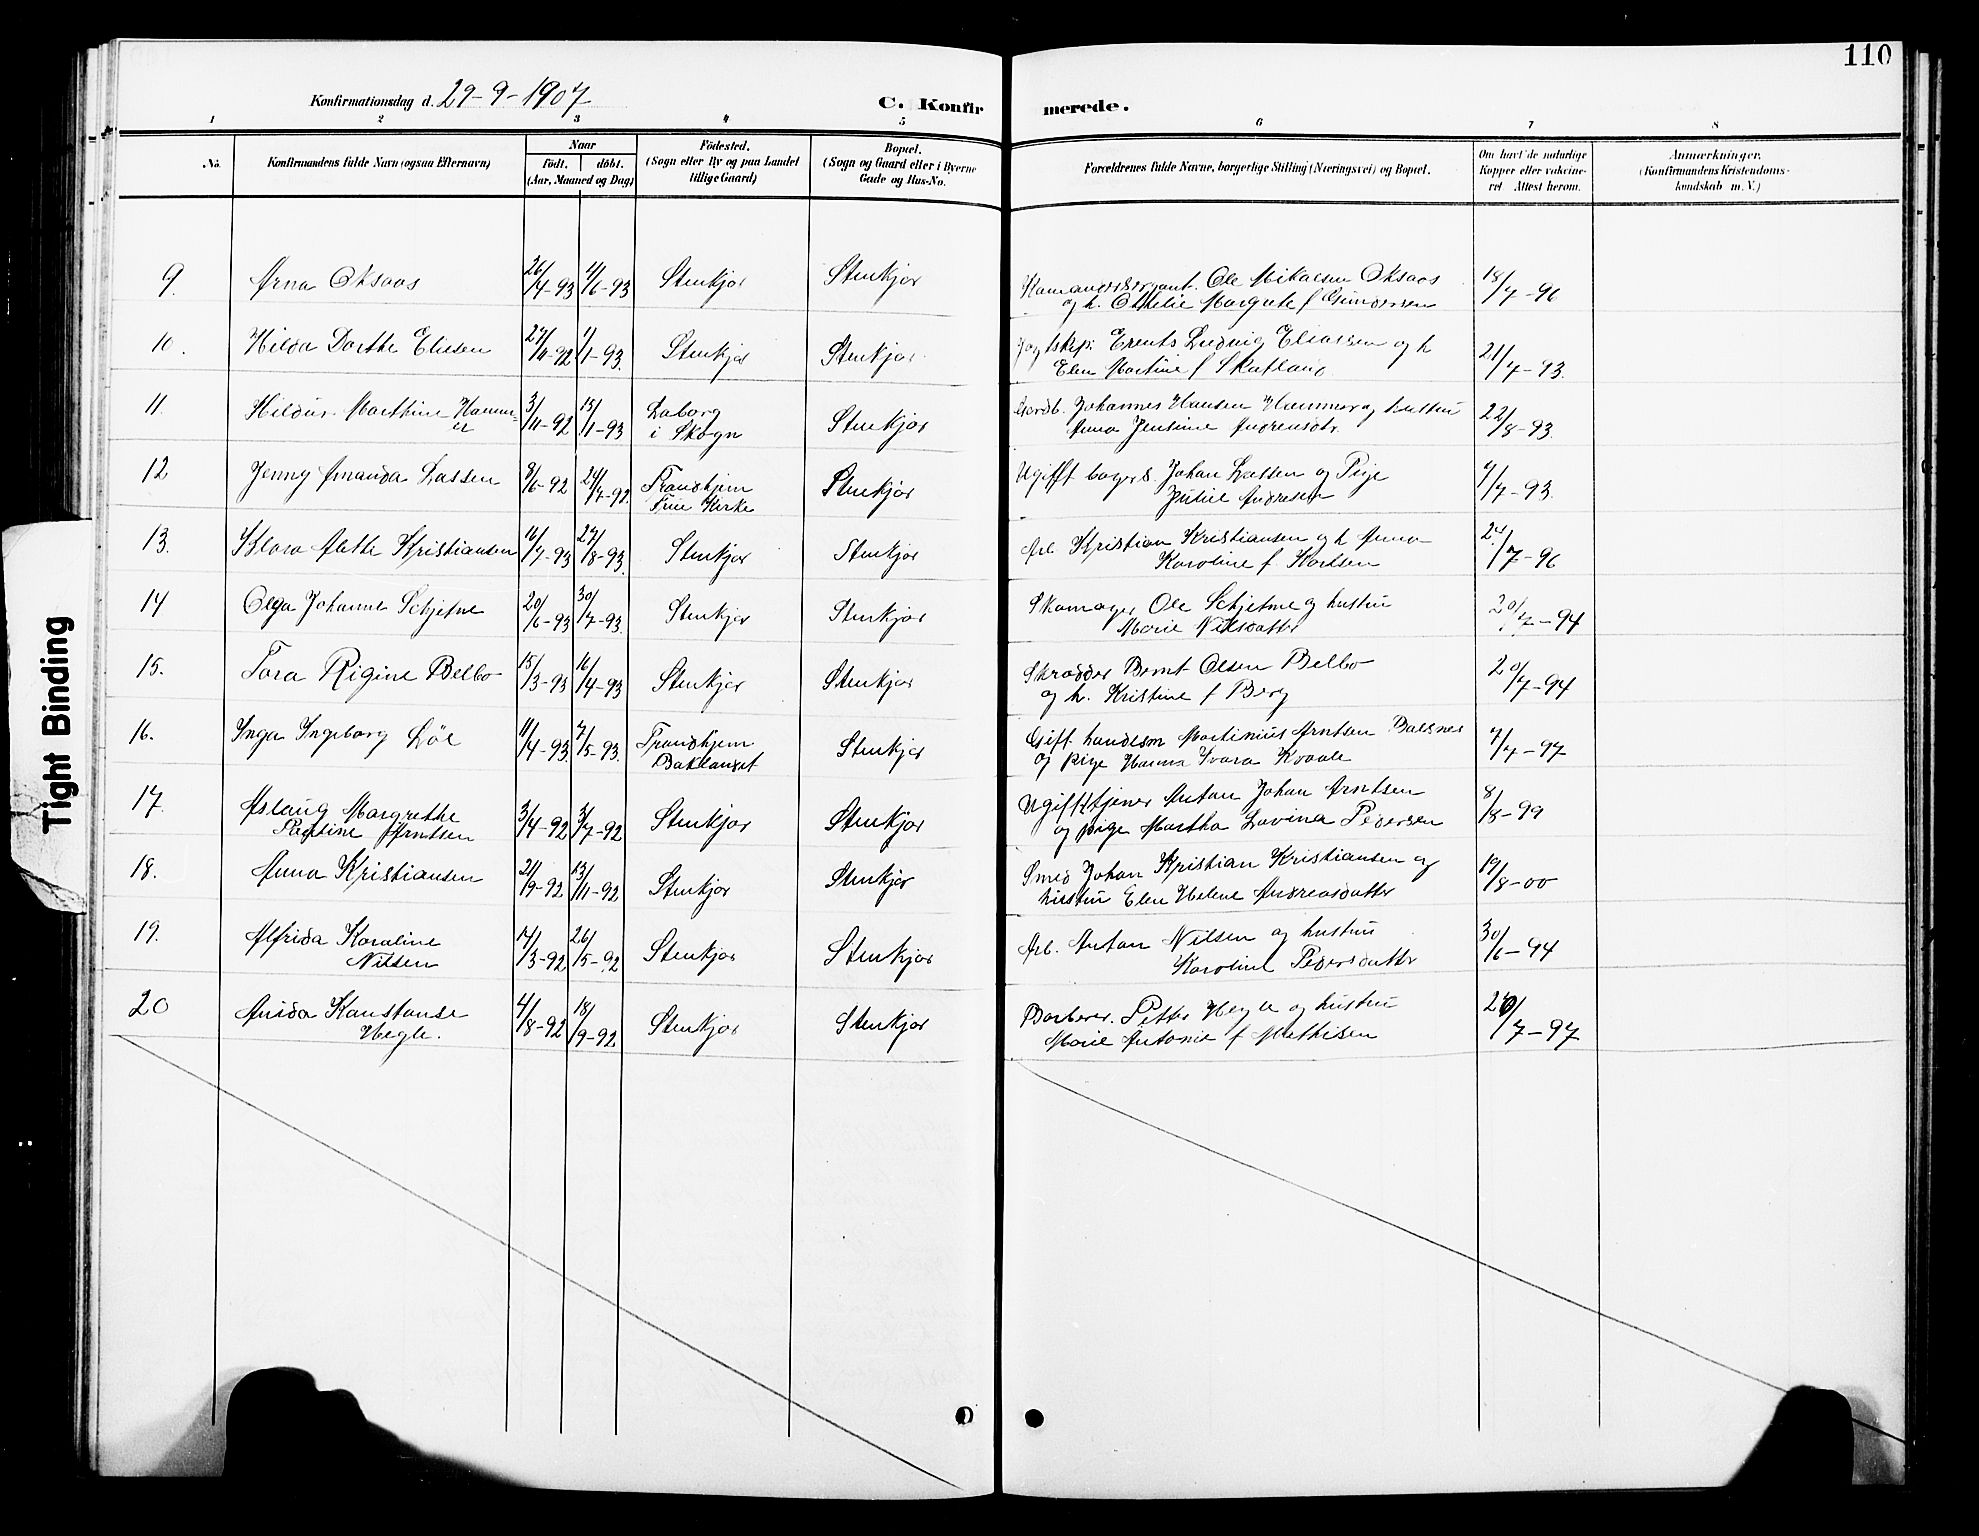 110
Konfirmationsdag d. 29-9-1907
C. Konfirmerede.
1 2 3 4 5 6 7 8
No.
Konfirmandens fulde Navn (ogsaa Efternavn)
Naar
født. døbt.
(Aar, Maaned og Dag)
Fødested.
(Sogn eller By og paa Landet
tillige Gaard)
Bopæl.
(Sogn og Gaard eller i Byerne
Gade og Hus-No.
Forældrenes fulde Navne, borgerlige Stilling (Næringsvei) og Bopæl.
Om havt de naturlige
Kopper eller vakcine-
ret Attest herom.
Anmærkninger.
(Konfirmandens Kristendoms-
kundskab m. V.)
9. Arna Oksaas 26/4-93 4/6-93 Stenkjær Stenkjær Ole Mikalsen Oksaas 18/7-96
og h. Othelie Margrete f Gundersen
10. Hilda Dorthe Eliesen 27/11-92 1/1-93. Stenkjær Stenkjær. Jagtskip: Erents Ludvig Eliassen og h 21/7-93.
Elen Martine f
11. Hildur Marthine Hammer 3/11-92 15/1-93 Laborg
i Skogn Stenkjær Gardb. Johannes Hansen Hammer og hustru 22/8-93.
Anna Jensine Andreasdtr.
12 Jenny Amanda Lassen 8/6-92 24/7-92. Trondhjem
Frue Kirke Stenkjær Ugift bagers. Johan Lassen og Pige 4/7-93.
Andresen
13. Klara Alette Kristiansen 16/7-93 27/8-93. Stenkjær Stenkjær Arb. Kristian Kristiansen og h Anna 24/7-96
Karoline f. Karlsen
14 Olga Johanne Schjetne 20/6-93 30/7-93. Stenkjær Stenkjær Skomager Ole Schjetne og hustru 20/7-94
Marie Nilsdatter
15. Tora Rigine Belbo 15/3-93 16/4-93 Stenkjær Stenkjær Skrædder Bernt Olsen Belbo 20/7-94
og h. Kristine f Berg
16. Inga Ingeborg Löe 11/4-93. 7/5-93. Trondhjem
Baklandet Stenkjær Gift handlsm Martinius Arntsen Balsnes 7/7-97
og pige Hanna Kvaale
17. Aslaug Margrethe
Pauline Arntsen 3/4-92 3/7-92 Stenkjær Stenkjær Ugift tjener Anton Johan Arntsen 8/8-99
og pige Martha Lovina Pedersen
18. Anna Kristiansen 21/9-92 13/11-92 Stenkjær Stenkjær Smed Johan Kristian Kristiansen og 19/8-00
hustru Elen Helene Andreasdatter
19. Alfrida Karoline
Nilsen 14/3-92 26/5-92 Stenkjær Stenkjær Arb. Anton Nilsen og hustru 30/6-94
Karoline Pedersdatter
20 Arida Konstanse
Hegle. 4/8-92 18/9-92 Stenkjær Stenkjær Barberer. Petter Hegle og hustru 20/7-97
Marie Antonie f Mathisen
Tight Binding